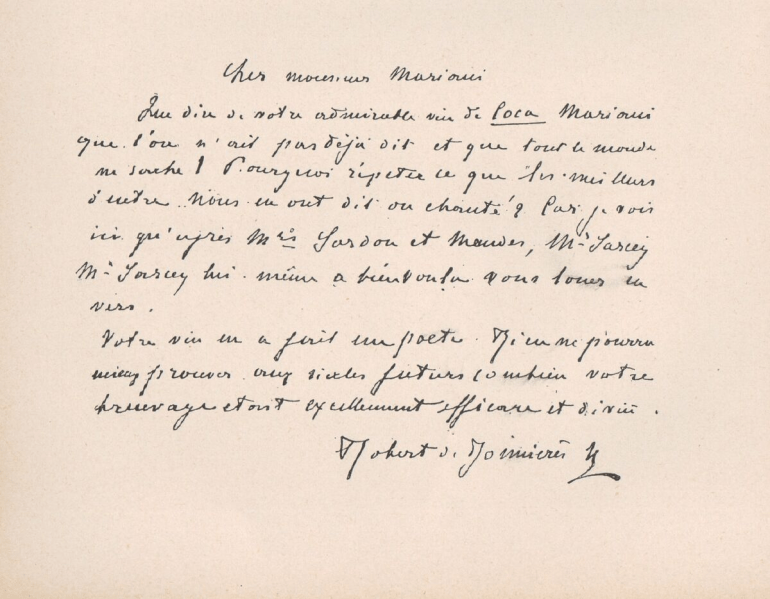 Cher monsieur Mariani
Que dire de votre admirable vin de Coca Mariani
que l'on n'ait pas déjà dit et que tout le monde
ne sache ! Pourquoi répéter ce que les meilleurs
d'entre nous en ont dit ou chanté ? Car je vois
ici qu'après Mrs Sardou et Mendès, Mr Sarcey
Mr Sarcey lui-même a bien voulu vous louer en
vers.
Votre vin en a fait un poète. Rien ne pourra
mieux prouver aux siècles futurs combien votre
breuvage etait excellemment efficace et divin.
Robert de Bonnières